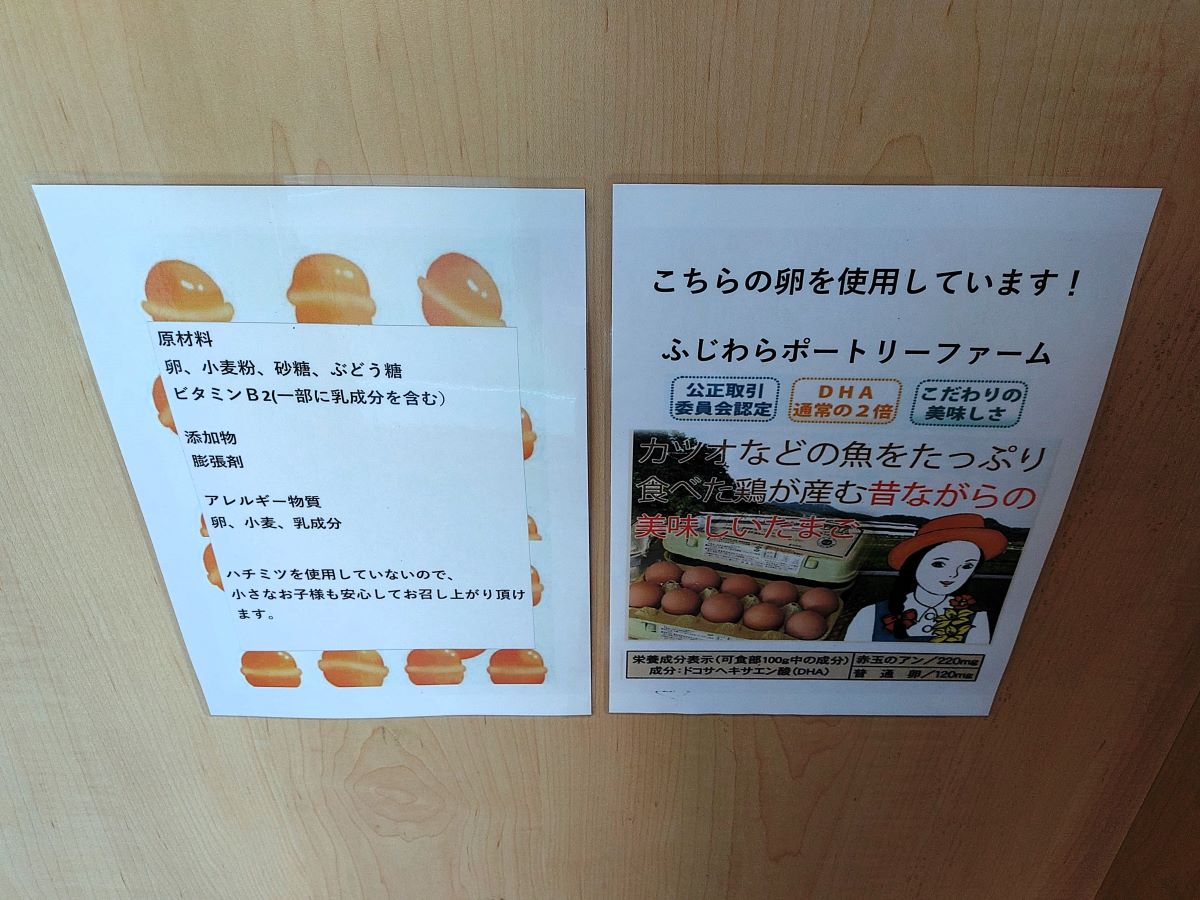 原材料
卵、小麦粉、砂糖、ぶどう糖
ビタミンB2(一部に乳成分を含む)
添加物
膨張剤
アレルギー物質
卵、小麦、乳成分
ハチミツを使用していないので、
小さなお子様も安心してお召し上がり頂け
ます。
こちらの卵を使用しています！
ふじわらポートリーファーム
公正取引
委員会認定
DHA
通常の2倍
こだわりの
美味しさ
カツオなどの魚をたっぷり
食べた鶏が産む昔ながらの
美味しいたまご
栄養成分表示(可食部100g中の成分)
成分:ドコサヘキサエン酸(DHA)
赤玉のアン/220mg
普通卵/120mg